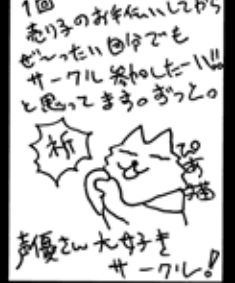 1回
売り子のお手伝いしてから
ぜ〜ったい自分でも
サークル参加したーい!!
と思ってます。ずっと。
祈
ぴあ猫
声優さん大好き
サークル!